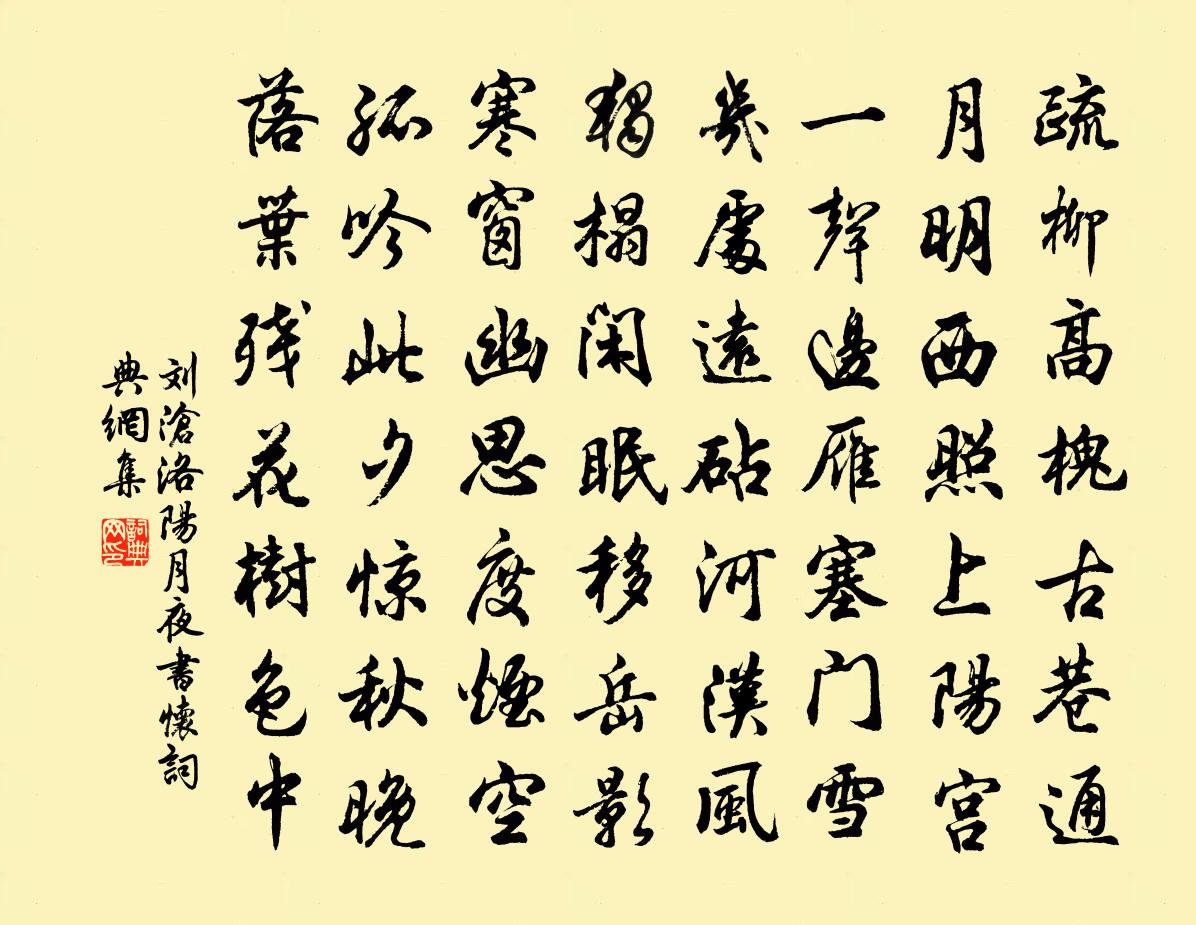 疏柳高槐古巷通
月明西照上陽宮
一聲邊雁塞门雪
幾處遠砧河漢風
獨榻閑眠移岳影
寒窗幽思度煙空
孤吟此夕惊秋晚
落葉殘花樹色中
刘滄洛陽月夜書懷詞
典網集
詞典
网印